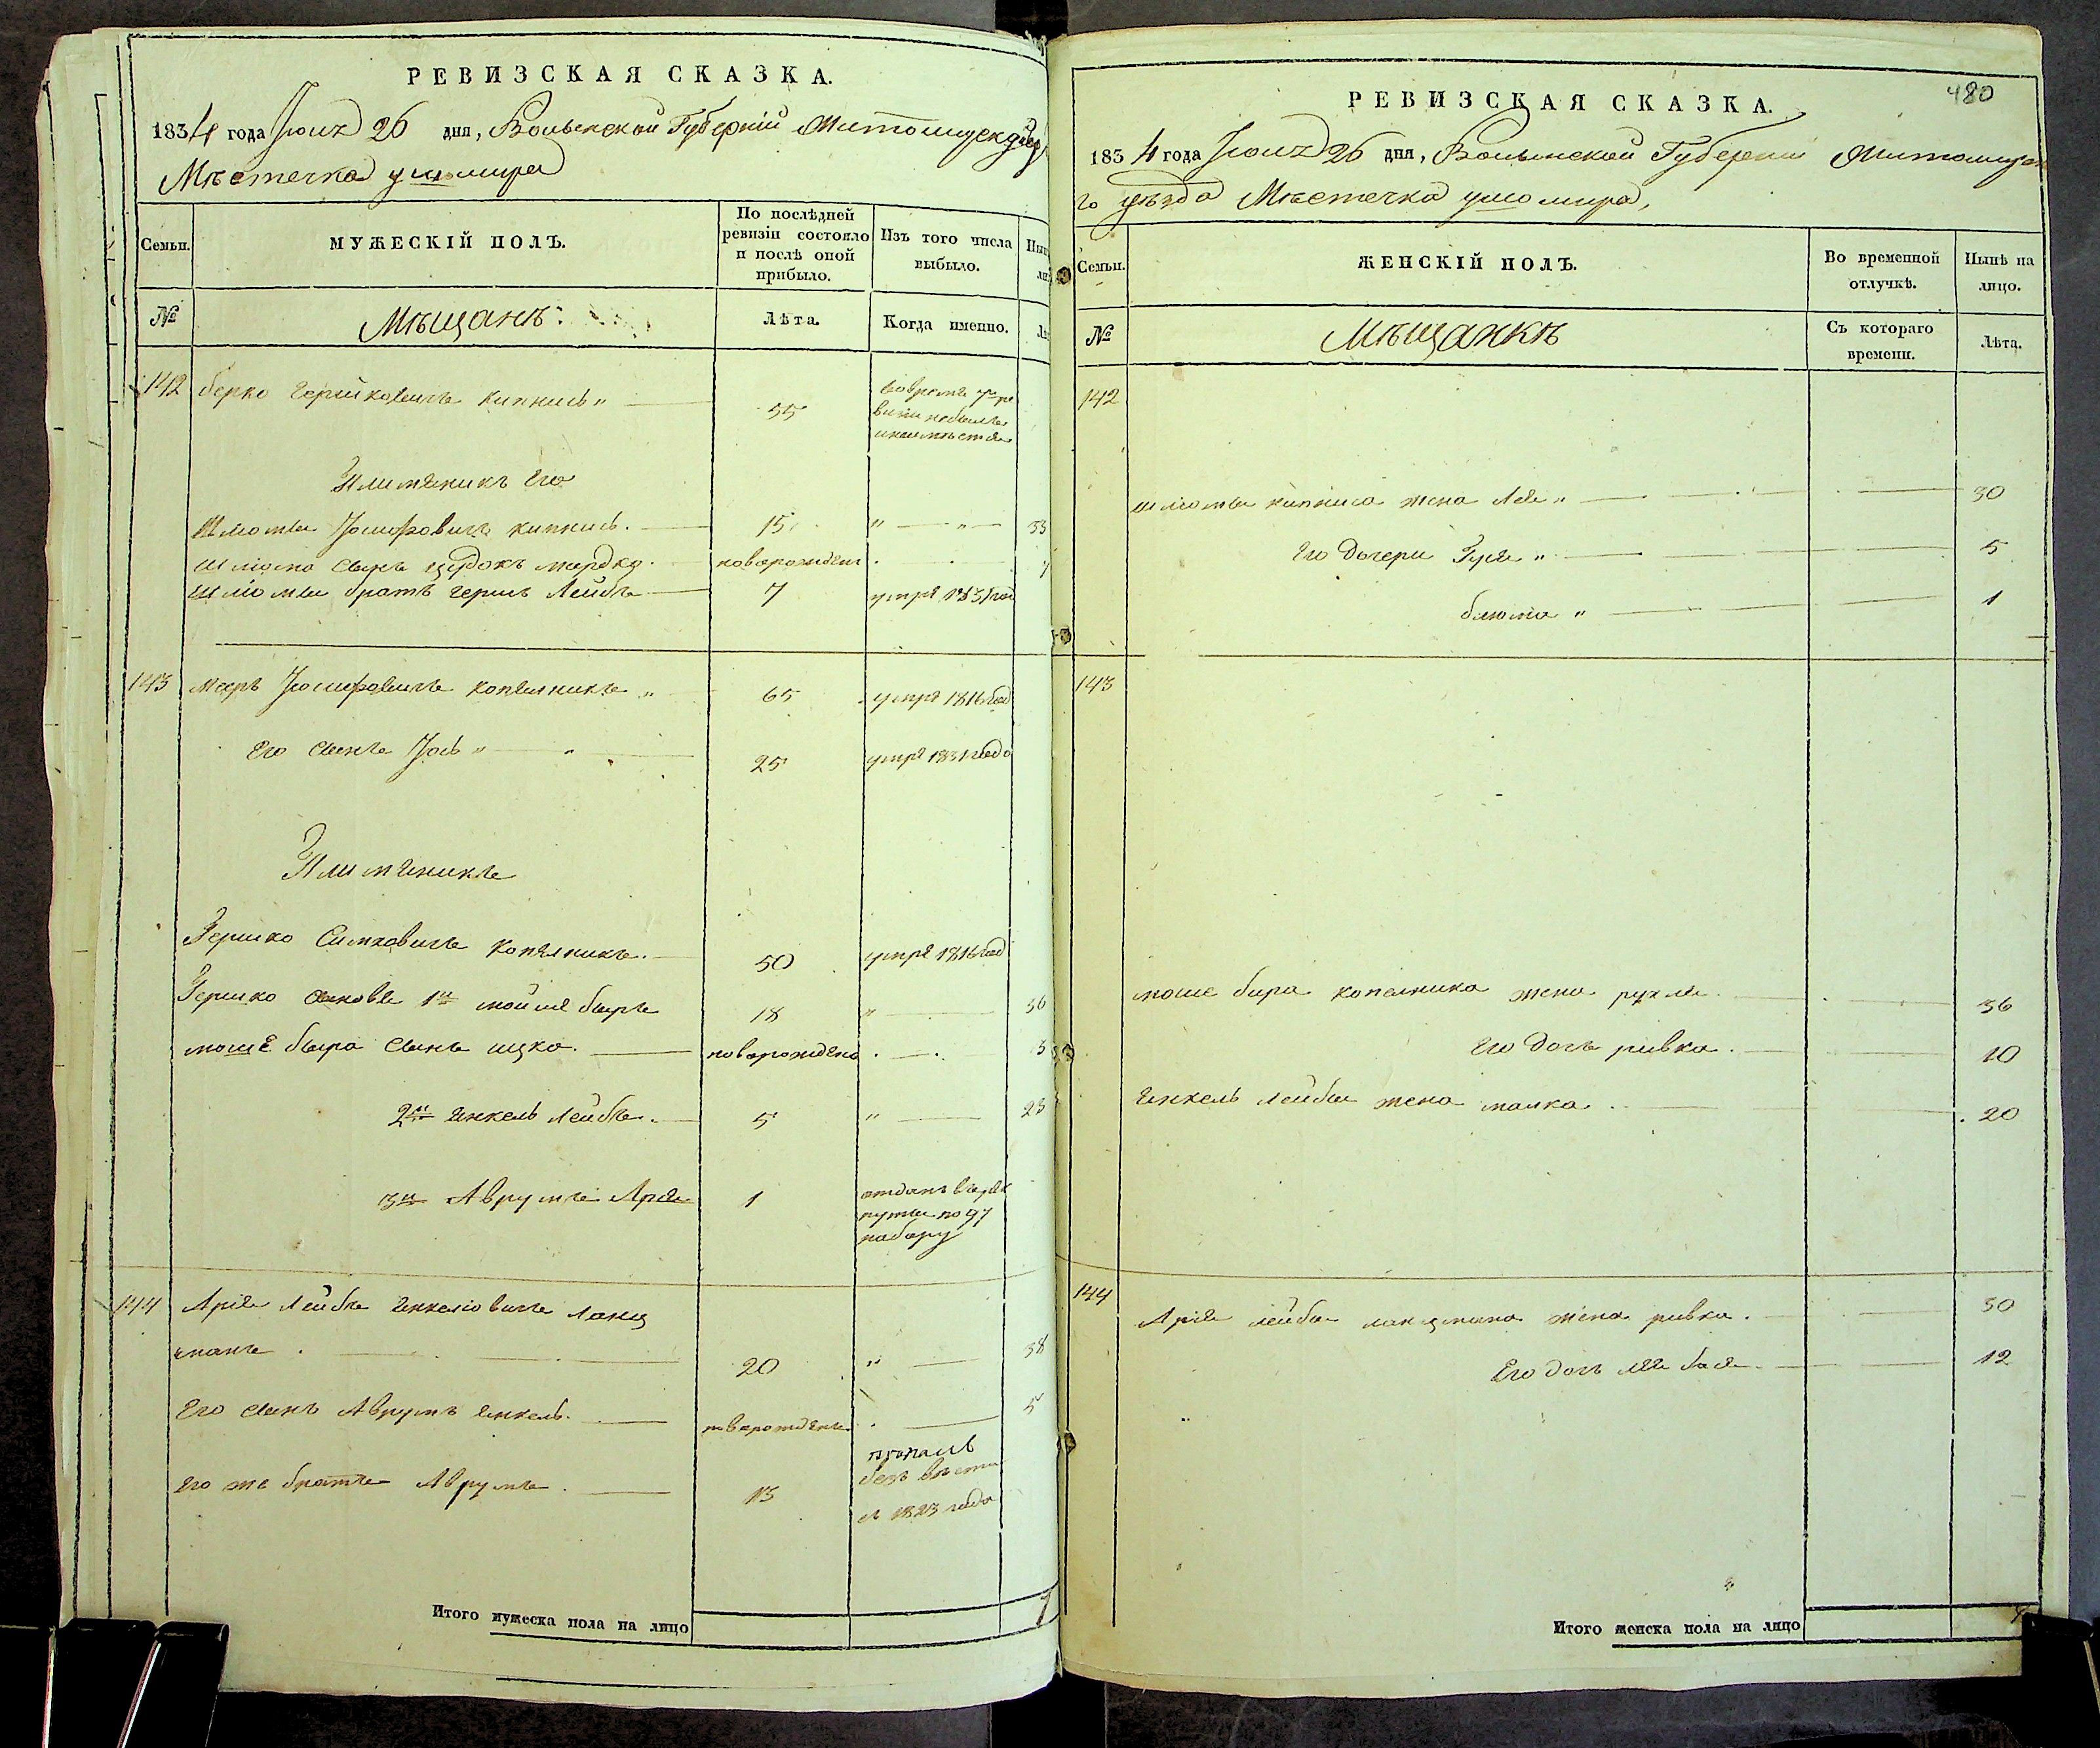 РЕВИЗСКАЯ СКАЗКА.
1834 года Июня 26 дня, Волынской Губернiи Житомирск
Мѣстечка ушомира
Семьи.
МУЖЕСКІЙ ПОЛЪ.
По послѣдней ревизіи состояло и послѣ оной прибыло.
Изъ того числа выбыло.
№
Мѣщанѣ.
Лѣта.
Когда именно.
142 берко гершковичъ кипнисъ 55
Плимяникъ Его
Шмоти Іосифовичъ кипнисъ. 15 33
сынъ мордко. новорожденъ
братъ гершъ Лейбъ 7 умре 1831 год
143 меэръ Іосифовичъ копелникъ 65 умре 1816 год
Его сынъ Іось 25 умре 1831 года
Плимяникъ
Гершко Симховичъ копелникъ. 50 умре 1816 год
Гершко сыновя 1й мойше быръ 18 36
моше быра сынъ ицко. новорожденъ 3
2й Янкель Лейбъ. 5 23
3й Аврумъ Аріе 1 отданъ в рек
руты по 97
набору
144 Аріе Лейбъ Янкелiовичъ Ланц
манъ 20 38
Его сынъ Аврумъ Янкель. новорожденъ 5
Его же братъ Аврумъ. 13 пропалъ
безъ вѣсти
с 1823 года
Итого мужеска пола на лицо 7
480
РЕВИЗСКАЯ СКАЗКА.
1834 года Июня 26 дня, Волынской Губернiи Житомирска
го уѣзда Мѣстечка ушомира,
Семьи.
ЖЕНСКІЙ ПОЛЪ.
Во временной отлучкѣ.
Нынѣ на лицо.
№
Мѣщанкѣ
Съ котораго времени.
Лѣта.
142
кипниса жена Лея 30
Его дочери Гуя 5
блюма 1
143
моше бира копелника жена рухля 36
Его дочь ривка. 10
Янкель Лейбы жена малка. 20
144
Аріе лейба ланцмана жена ривка. 30
Его дочь лея бася 12
Итого женска пола на лицо